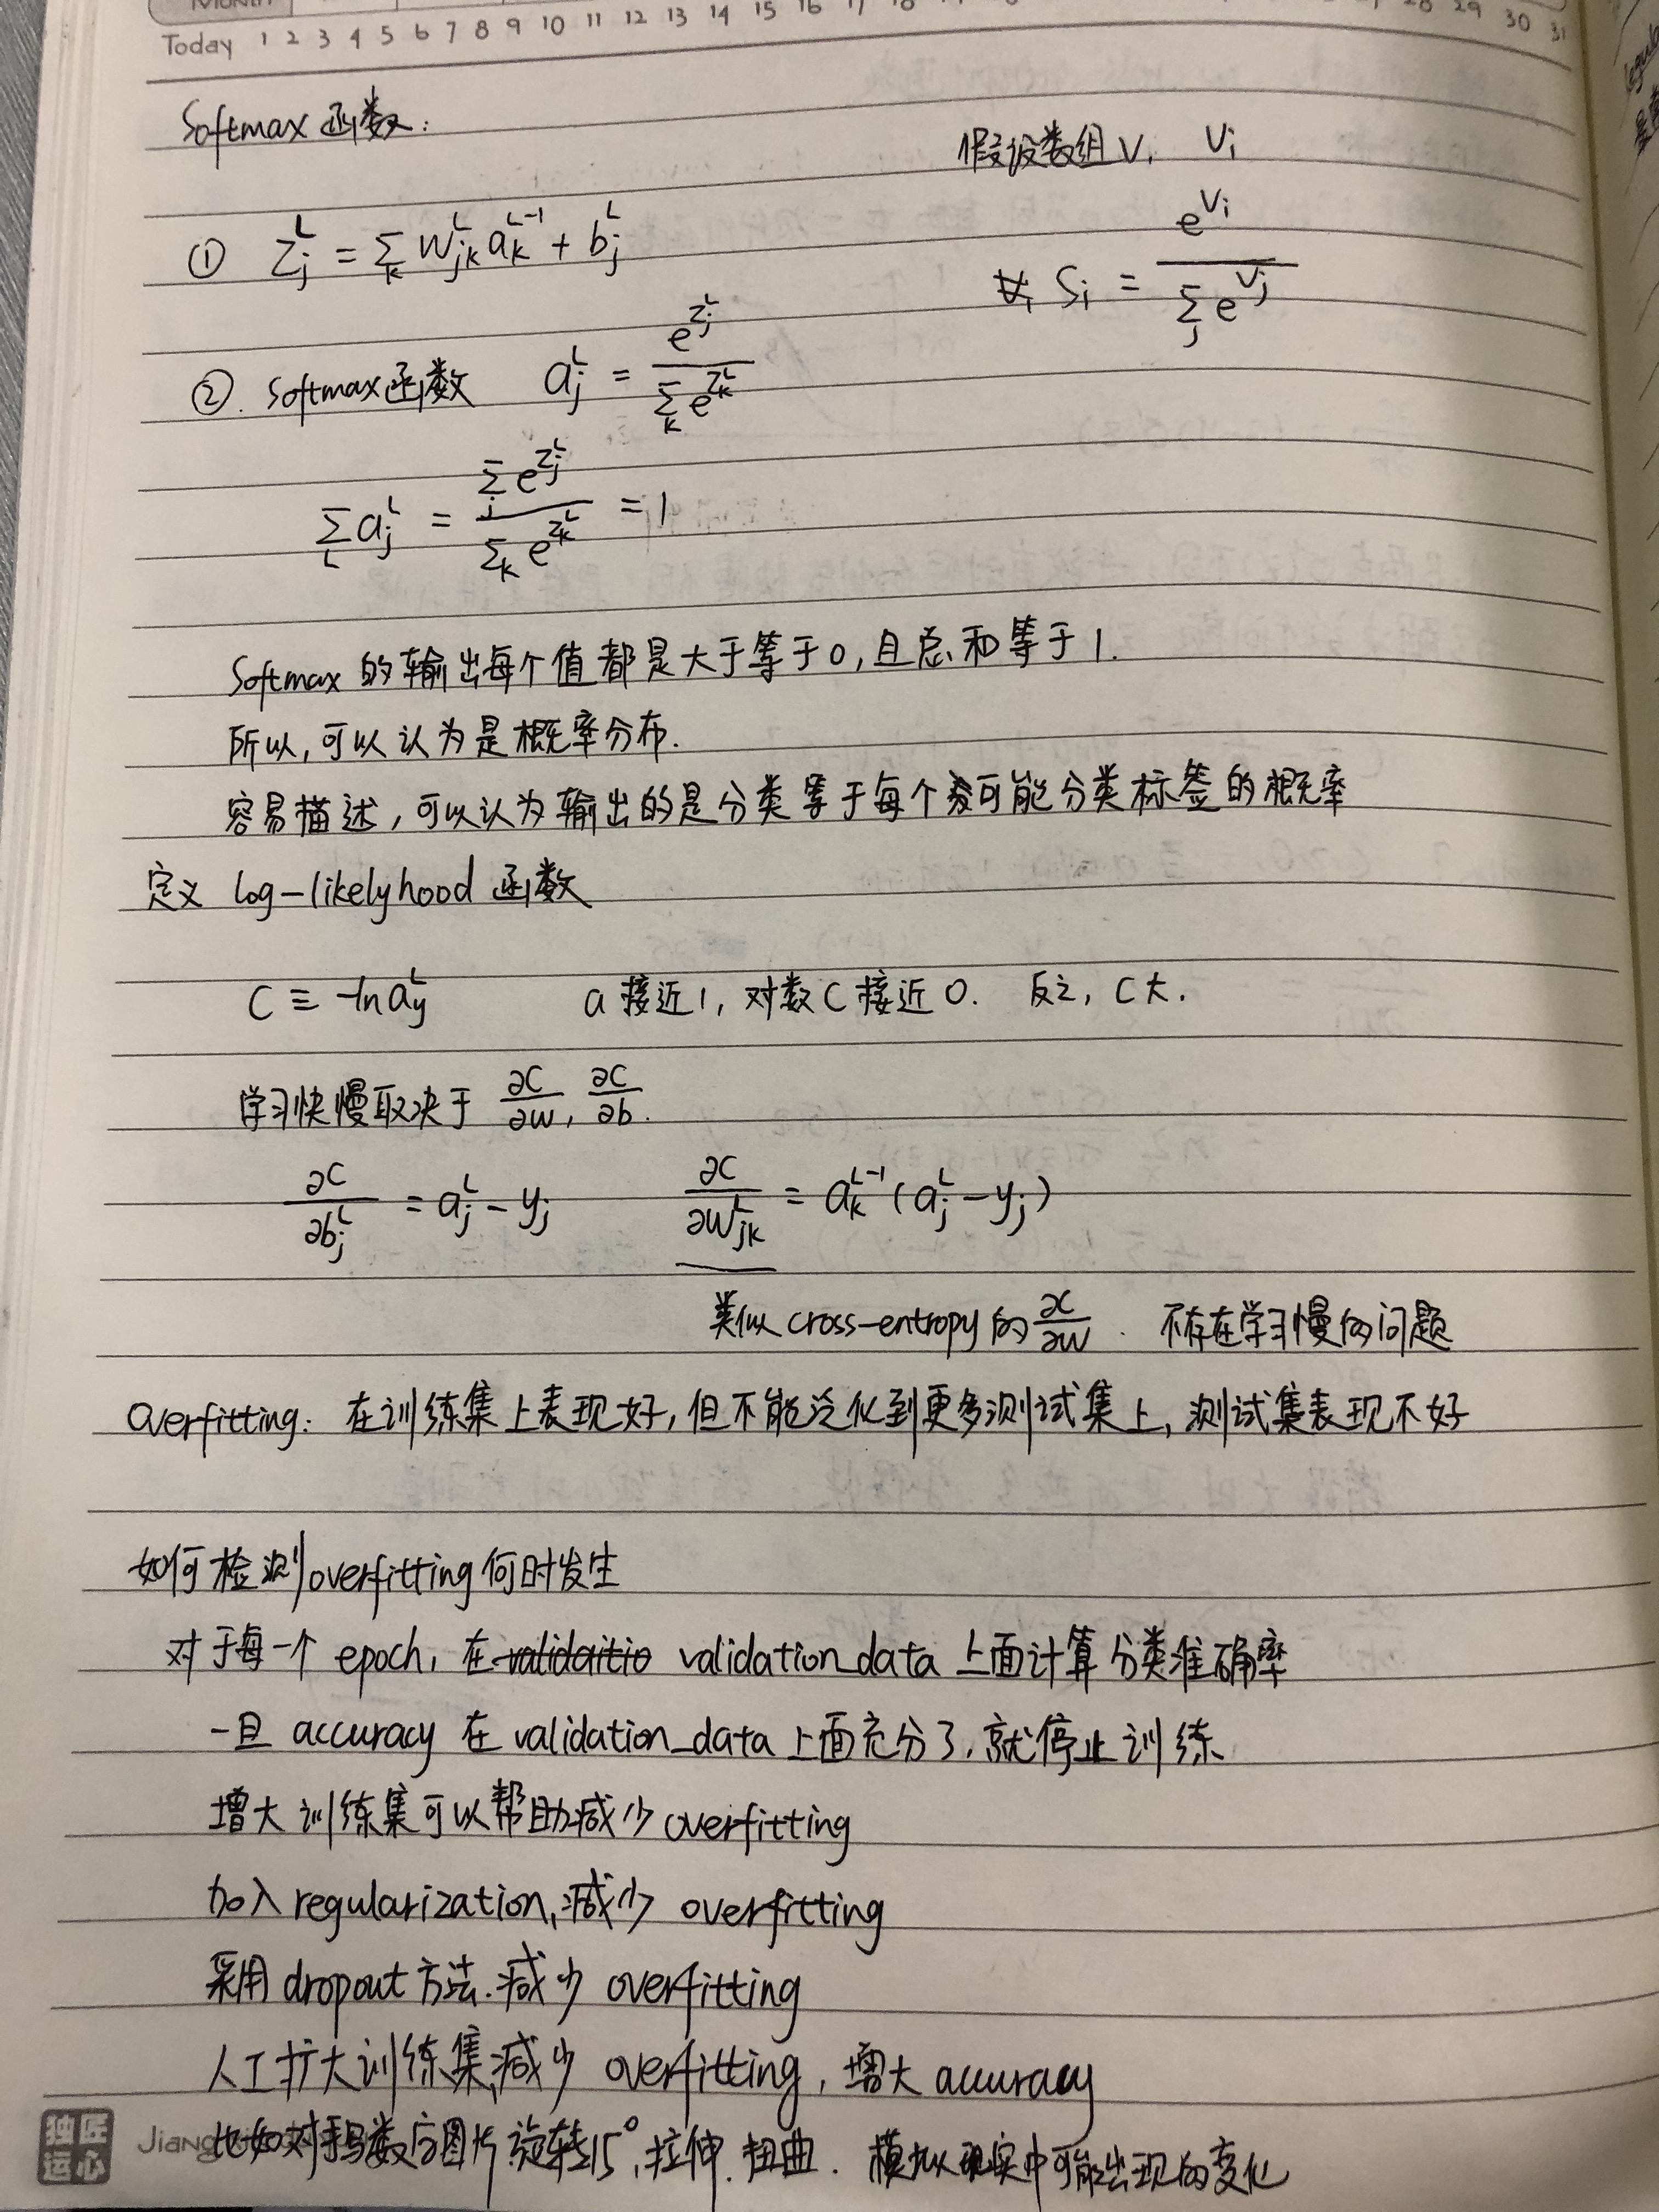 Month
Today 1 2 3 4 5 6 7 8 9 10 11 12 13 14 15 16 17 18 28 29 30 31
Softmax 函数:
假设数组V, Vi
① z_j^L = Σ_k w_jk^L a_k^{L-1} + b_j^L
Si = e^{Vi} / Σ_j e^{Vj}
②. softmax函数 a_j^L = e^{z_j^L} / Σ_k e^{z_k^L}
Σ_L a_j^L = Σ_j e^{z_j^L} / Σ_k e^{z_k^L} = 1
Softmax 的输出每个值都是大于等于0,且总和等于1.
所以,可以认为是概率分布.
容易描述,可以认为输出的是分类等于每个可能分类标签的概率
定义 log-likelyhood 函数
C ≡ -ln a_y^L a 接近1, 对数C接近0. 反之, C大.
学习快慢取决于 ∂C/∂w, ∂C/∂b.
∂C/∂b_j^L = a_j^L - y_j ∂C/∂w_jk^L = a_k^{L-1} (a_j^L - y_j)
类似 cross-entropy 的 ∂C/∂w . 不存在学习慢的问题
Overfitting: 在训练集上表现好,但不能泛化到更多测试集上,测试集表现不好
如何检测overfitting何时发生
对于每一个 epoch, 在 validaitio validation_data 上面计算分类准确率
一旦 accuracy 在 validation_data 上面充分了,就停止训练
增大训练集可以帮助减少 overfitting
加入regularization,减少 overfitting
采用 dropout 方法.减少 overfitting
人工扩大训练集,减少 overfitting, 增大 accuracy
独匠运心 Jiang
比如对手写数字图片旋转15°,拉伸.扭曲. 模拟现实中可能出现的变化